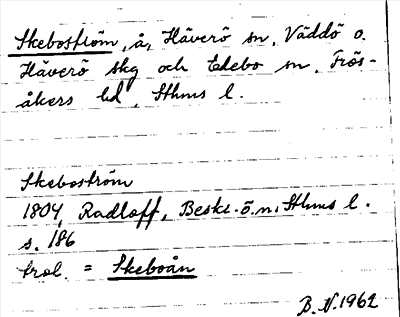 Skeboström, å, Häverö sn, Väddö o.
Häverö skg och Edebo sn, Frös-
åkers hd, Sthms l.
Skeboström
1804, Radloff, Beskr. ö. n. Sthms l.
s. 186
trol. = Skeboån
B.N.1962